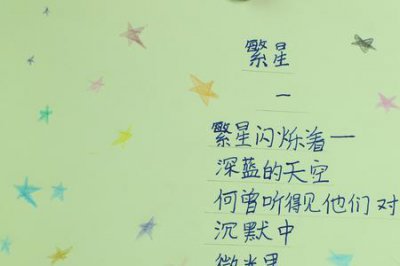 繁星
一
繁星闪烁着一
深蓝的天空
何曾听得见他们对
沉默中
微光里